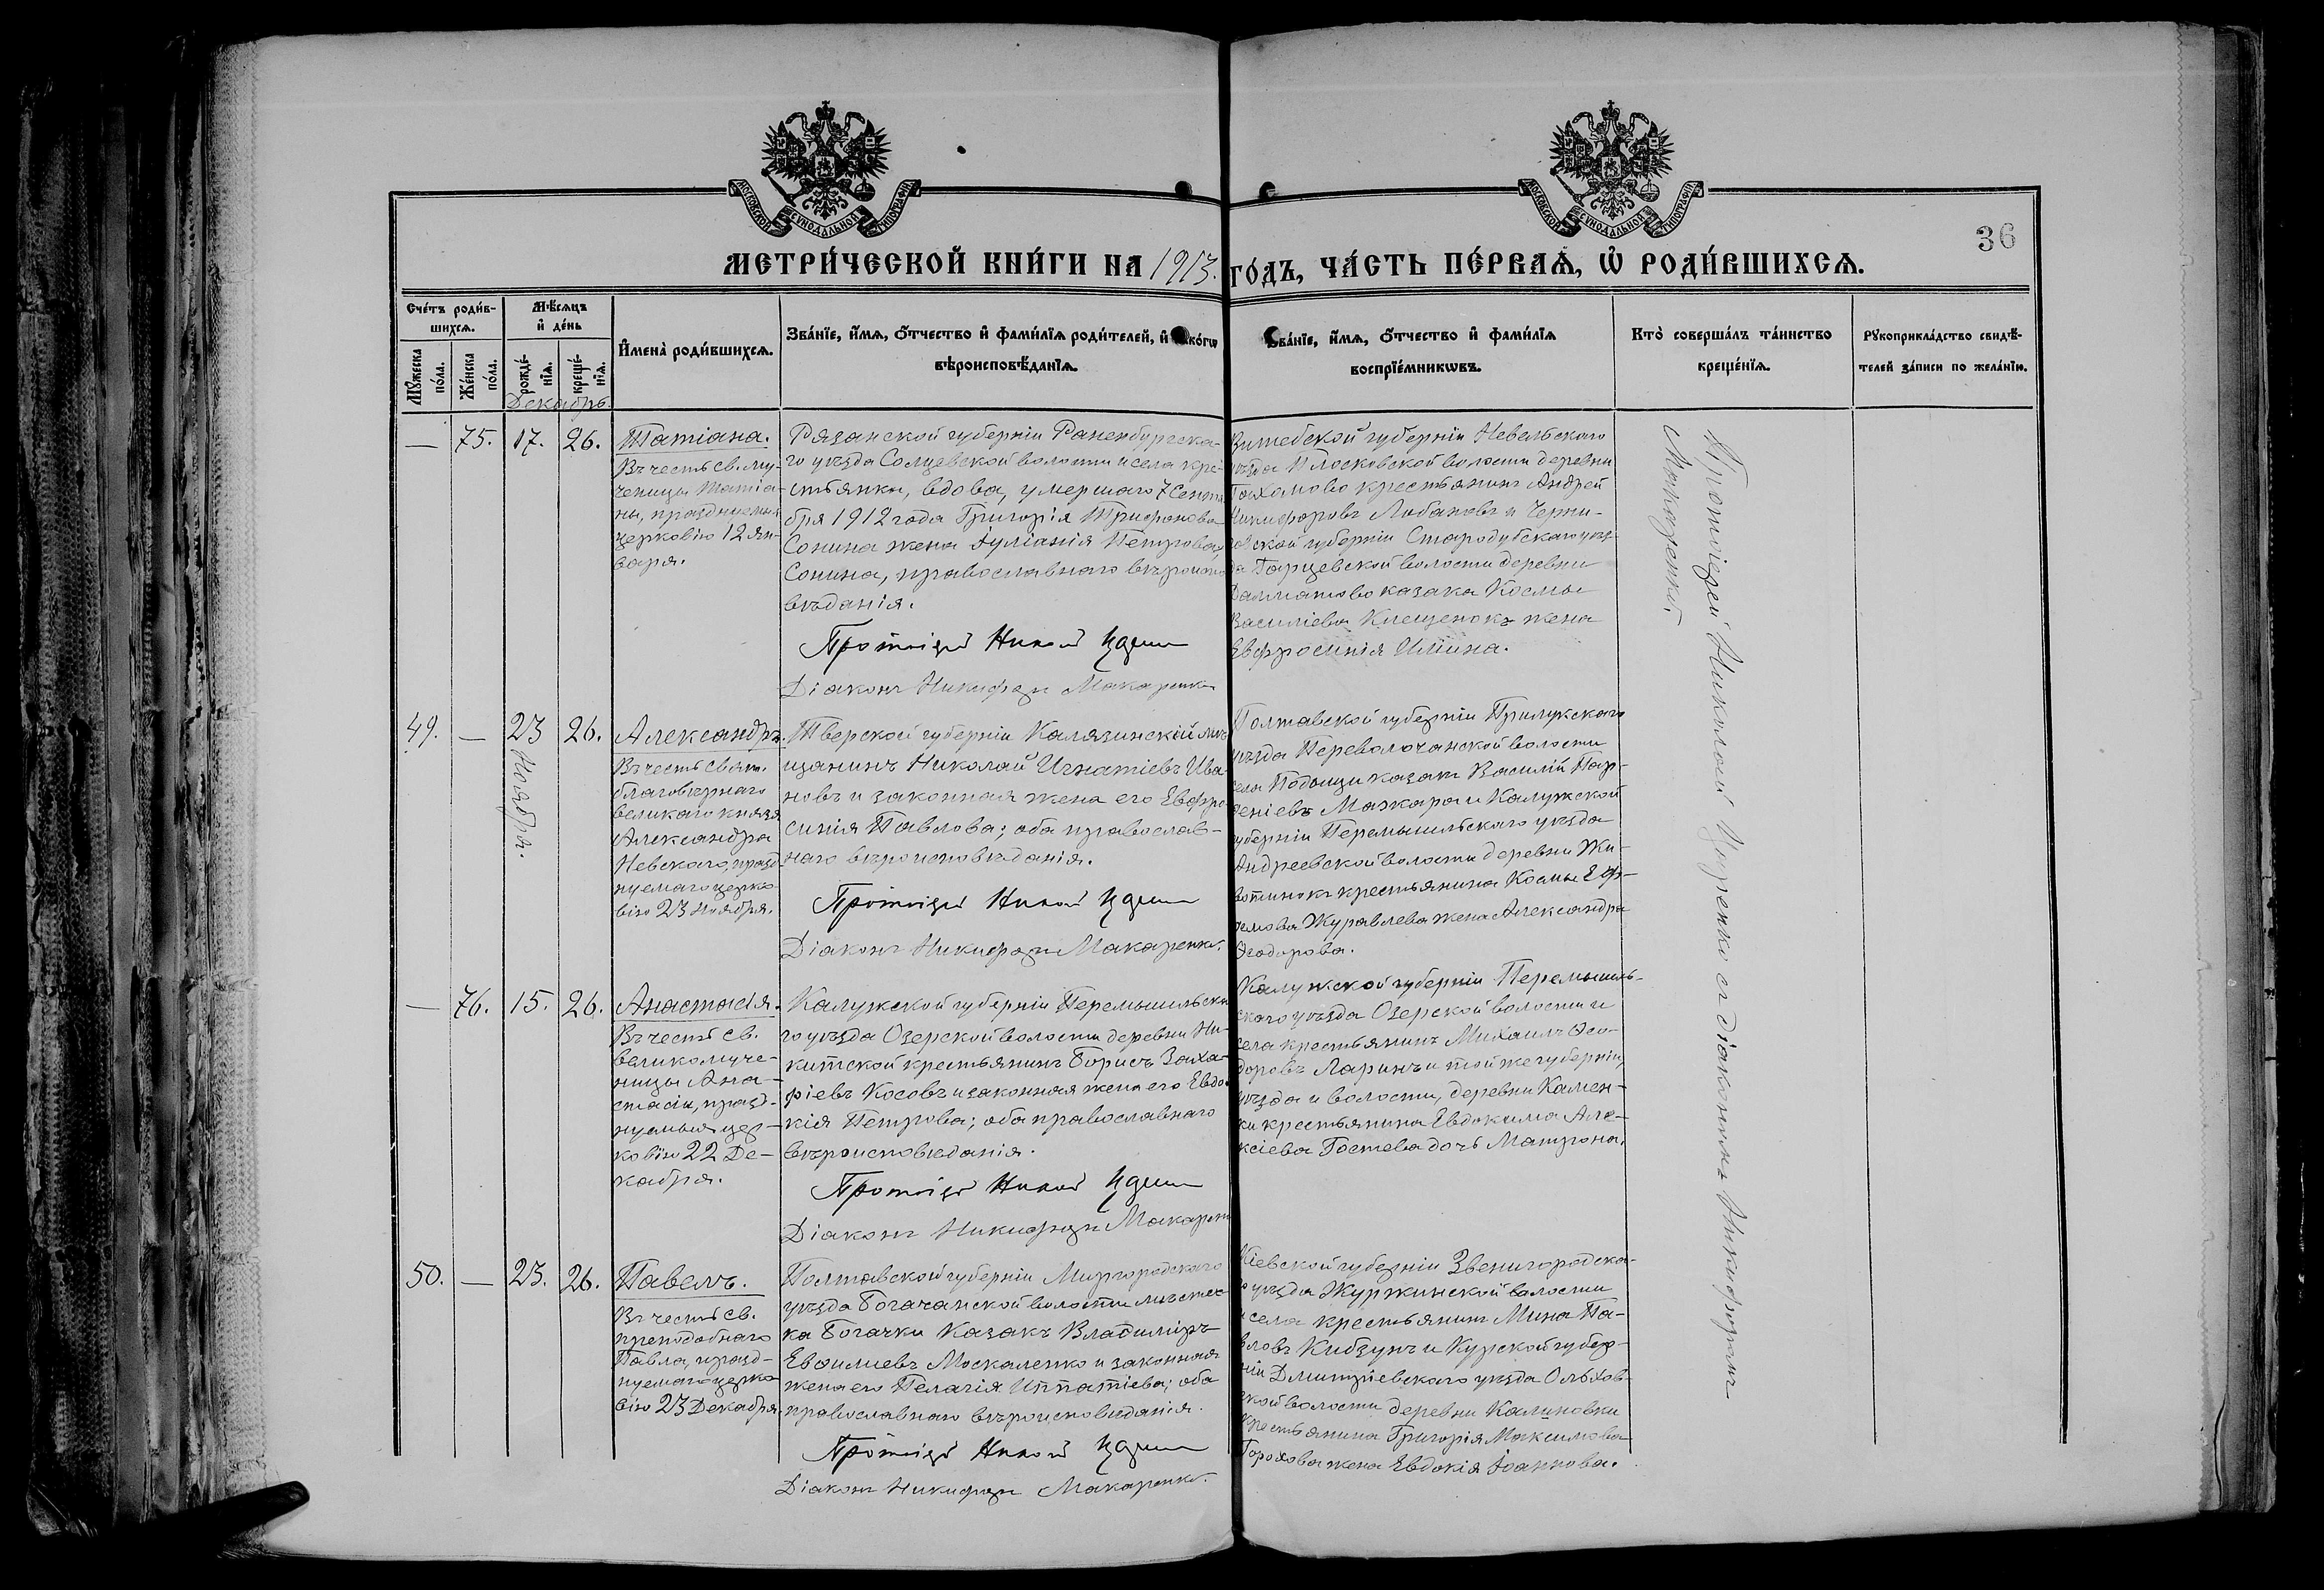 МОСКОВСКОЙ СУНОДАЛЬНОЙ ТИПОГРАФІИ
МОСКОВСКОЙ СУНОДАЛЬНОЙ ТИПОГРАФІИ
36
МЕТРИ́ЧЕСКОЙ КНИ́ГИ НА 1913. ГО́ДЪ, ЧА́СТЬ ПЕ́РВАѦ, Ѡ҆ РОДИ́ВШИХСѦ.
Сче́тъ роди́в-
шихсѧ.
Мꙋ́жеска
по́ла.
Же́нска
по́ла.
Мѣ́сѧцъ
и҆ де́нь
рожде́-
нїѧ.
креще́-
нїѧ.
Декабрь.
И҆мена̀ роди́вшихсѧ.
Зва́нїе, и҆́мѧ, ѻ҆́тчество и҆ фами́лїѧ роди́телей, и҆ како́гѡ
вѣроисповѣ́данїѧ.
Зва́нїе, и҆́мѧ, ѻ҆́тчество и҆ фами́лїѧ
воспрїе́мникѡвъ.
Кто̀ соверша́лъ та́инство
креще́нїѧ.
Рꙋкоприкла́дство свидѣ́-
телей за́писи по жела́нїю.
— 75. 17. 26.
Татіана.
Въ честь св. му-
ченицы Татіа-
ны, празднуемыя
церковію 12 Ян-
варя.
Рязанской губерніи Раненбургска-
го уѣзда Солцевской волости и села кре-
стьянки, вдова, умершаго 7 Сентя
бря 1912 года Григорія Трифонова
Сонина жена Іуліанія Петрова
Сонина, православнаго вѣроиспо
вѣданія.
Протоіерей Николай
Діаконъ Никифоръ Макаренко
Витебской губерніи Невельскаго
уѣзда Плосковской волости деревни
крестьянинъ Андрей
Никифоровъ Лобановъ и Черни-
говской губерніи Стародубскаго уѣз-
да Гарцевской волости деревни
Далматово казака Космы
Василіева Клещенокъ жена
Евфросинія Ильина.
Протоіерей Николай съ діакономъ Никифоромъ
Макаренко.
49. — 23 26.
Ноября.
Александръ.
Въ честь свят.
благовѣрнаго
великаго князя
Александра
Невскаго, празд-
нуемаго церко-
вію 23 Ноября.
Тверской губерніи Калязинской мѣ-
щанинъ Николай Игнатіевъ Ива-
новъ и законная жена его Евфро
синія Павлова; оба православ-
наго вѣроисповѣданія.
Протоіерей Николай
Діаконъ Никифоръ Макаренко.
Полтавской губерніи Прилукскаго
уѣзда Переволочанской волости
села Подищи казакъ Василій Пар-
ѳеніевъ Мажара и Калужской
губерніи Перемышльскаго уѣзда
Андреевской волости деревни Жи-
вотинокъ крестьянина Космы Еф-
ремова Журавлева жена Александра
Ѳеодорова.
— 76. 15. 26.
Анастасія.
Въ честь св.
великомуче-
ницы Ана-
стасіи, празд-
нуемыя цер-
ковію 22 Де-
кабря.
Калужской губерніи Перемышльска
го уѣзда Озерской волости деревни Ни-
китской крестьянинъ Борисъ Заха-
ріевъ Косовъ и законная жена его Евдо-
кія Петрова; оба православнаго
вѣроисповѣданія.
Протоіерей Николай
Діаконъ Никифоръ Макаренко
Калужской губерніи Перемышль-
скаго уѣзда Озерской волости и
села крестьянинъ Михаилъ Ѳео-
доровъ Ларинъ и той же губерніи,
уѣзда и волости, деревни Камен-
ки крестьянина Евдокима Але-
ксіева Гостева дочь Матрона.
50. — 23. 26.
Павелъ.
Въ честь св.
преподобнаго
Павла, празд-
нуемаго церко-
вію 23 Декабря.
Полтавской губерніи Миргородскаго
уѣзда Богачанской волости мѣстеч-
ка Богачки казакъ Владиміръ
Евѳиміевъ Москаленко и законная
жена его Пелагія Ипатіева; оба
православнаго вѣроисповѣданія.
Протоіерей Николай
Діаконъ Никифоръ Макаренко.
Кіевской губерніи Звенигородска-
го уѣзда Журжинской волости
и села крестьянинъ Мина Па-
вловъ Кибзунъ и Курской губер-
ніи Дмитріевскаго уѣзда Ольхов-
ской волости деревни Калиновки
крестьянина Григорія Максимова
Горохова жена Евдокія Іоаннова.